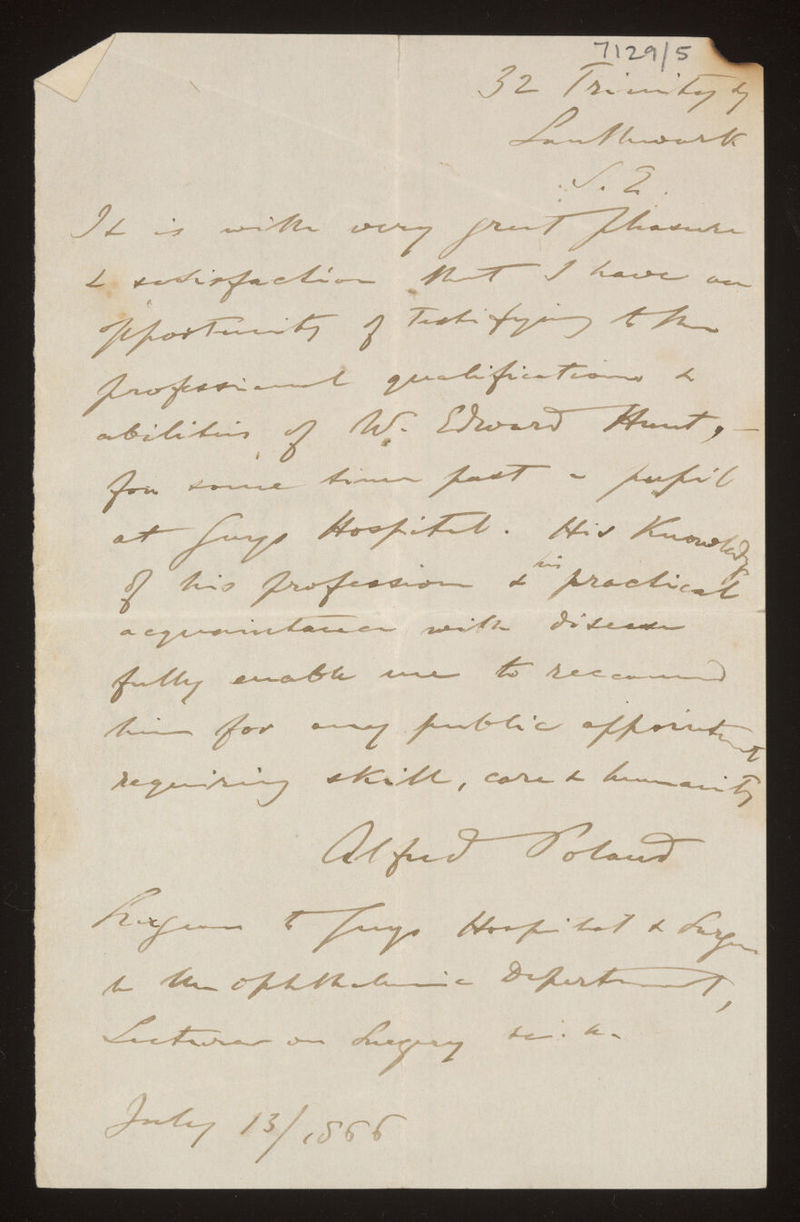 7129/5
32 Trinity Sq
Southwark
S. E.
It is with very great pleasure
& satisfaction that I have an
opportunity of testifying to the
professional qualifications &
abilities of W. Edward Hunt, –
for some time past a pupil
at Guys Hospital. His Knowledge
of his profession & his practical
acquaintance with disease
fully enable me to reccomend
him for any public appointment
requiring skill, care & humanity
Alfred Poland
Surgeon to Guys Hospital & Surgeon
to the Ophthalmic Department,
Lecturer on Surgery
July 13/1866